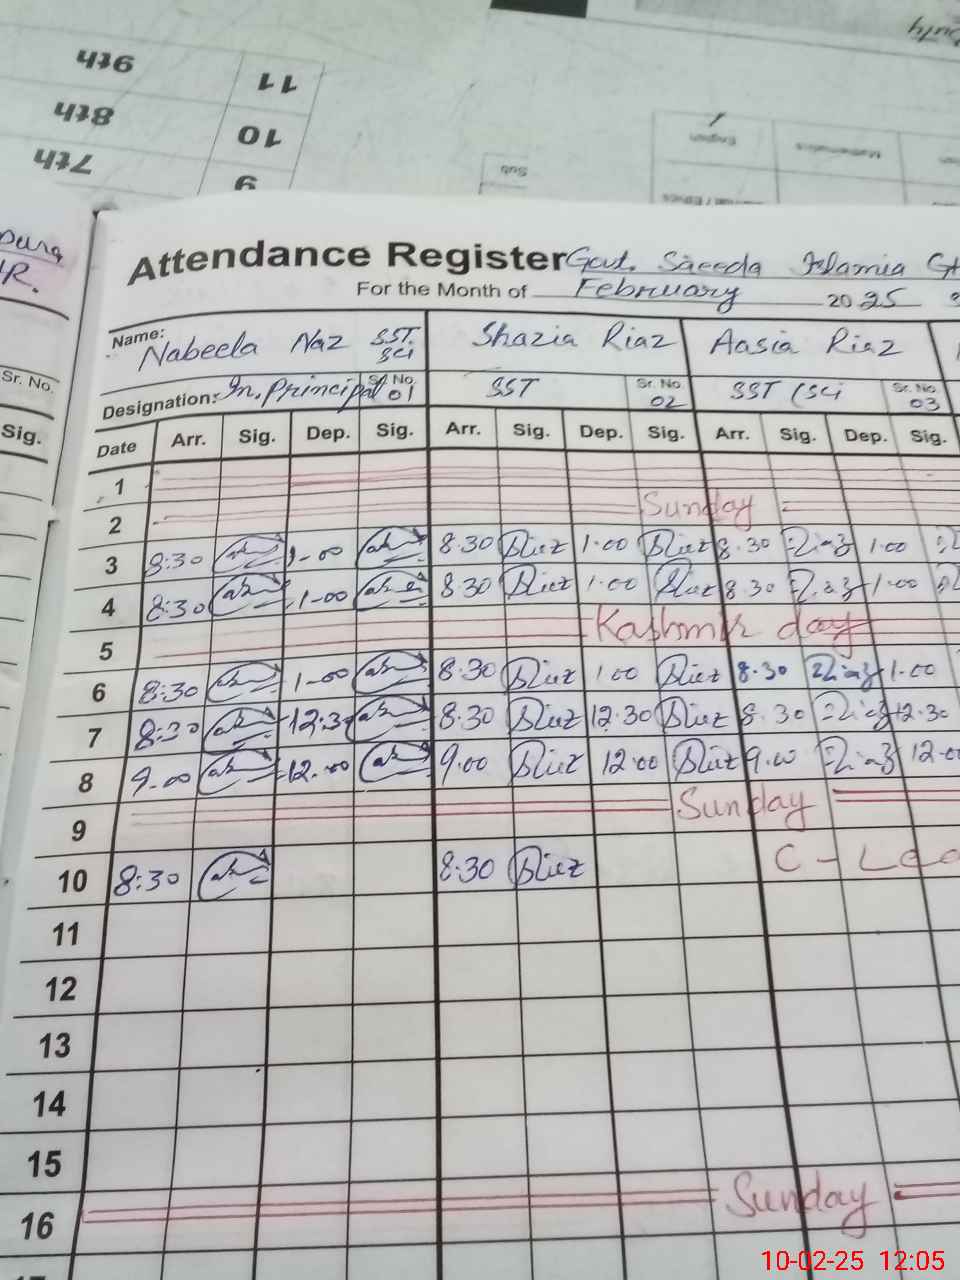 9th 11
8th 10
7th 9
Sub
English Mathematics
Attendance Register Govt. Saeeda Islamia
For the Month of February 2025
Name: Nabeela Naz SST. Sci Shazia Riaz Aasia Riaz
Designation: In. Principal Sr. No. 01 SST Sr. No. 02 SST (Sci Sr. No. 03
Sr. No.
Sig.
Date Arr. Sig. Dep. Sig. Arr. Sig. Dep. Sig. Arr. Sig. Dep. Sig.
1
2 Sunday
3 8:30 1-00 8.30 1.00 8.30 1.00
4 8:30 1-00 8.30 1.00 8.30 1.00
5 Kashmir day
6 8:30 1-00 8.30 1.00 8.30 1.00
7 8:30 12:3 8.30 12.30 8.30 12.30
8 9.00 12.00 9.00 12.00 9.00 12.00
9 Sunday
10 8:30 8.30 C - Lea
11
12
13
14
15
16 Sunday
10-02-25 12:05